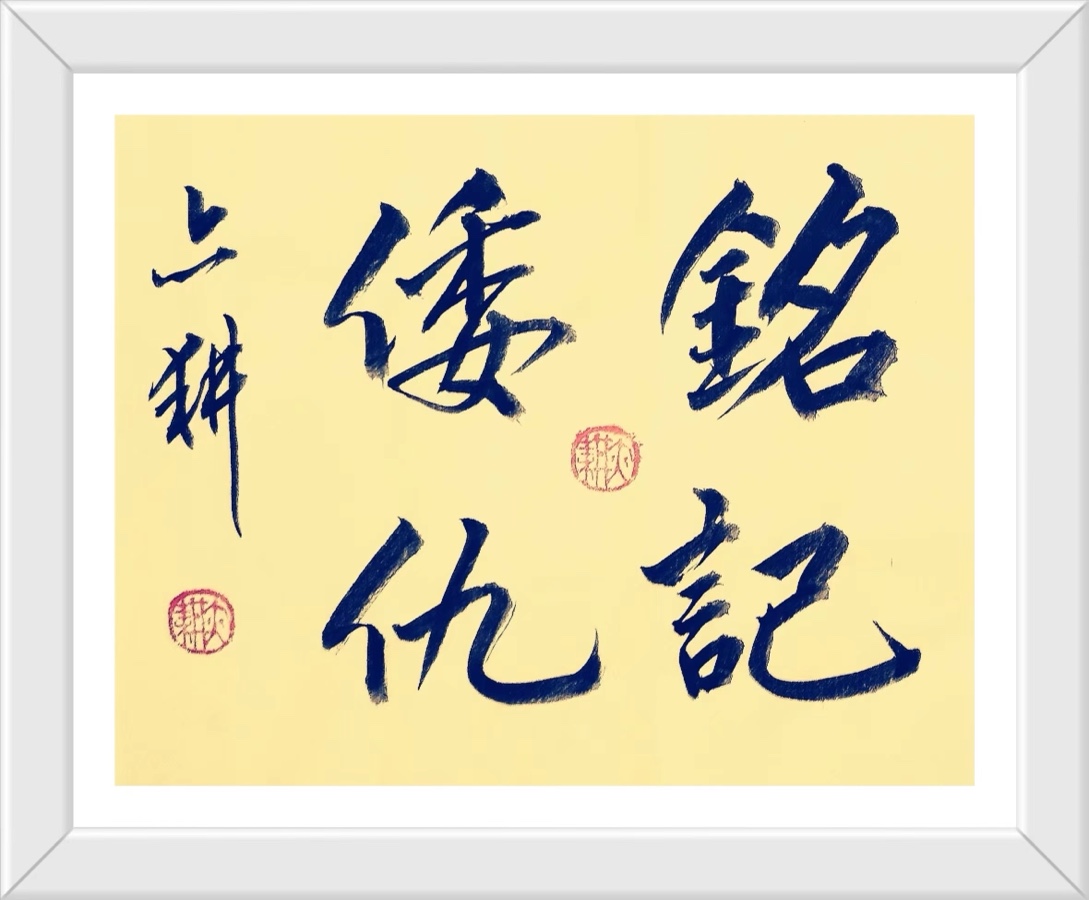 銘記
倭仇
六耕